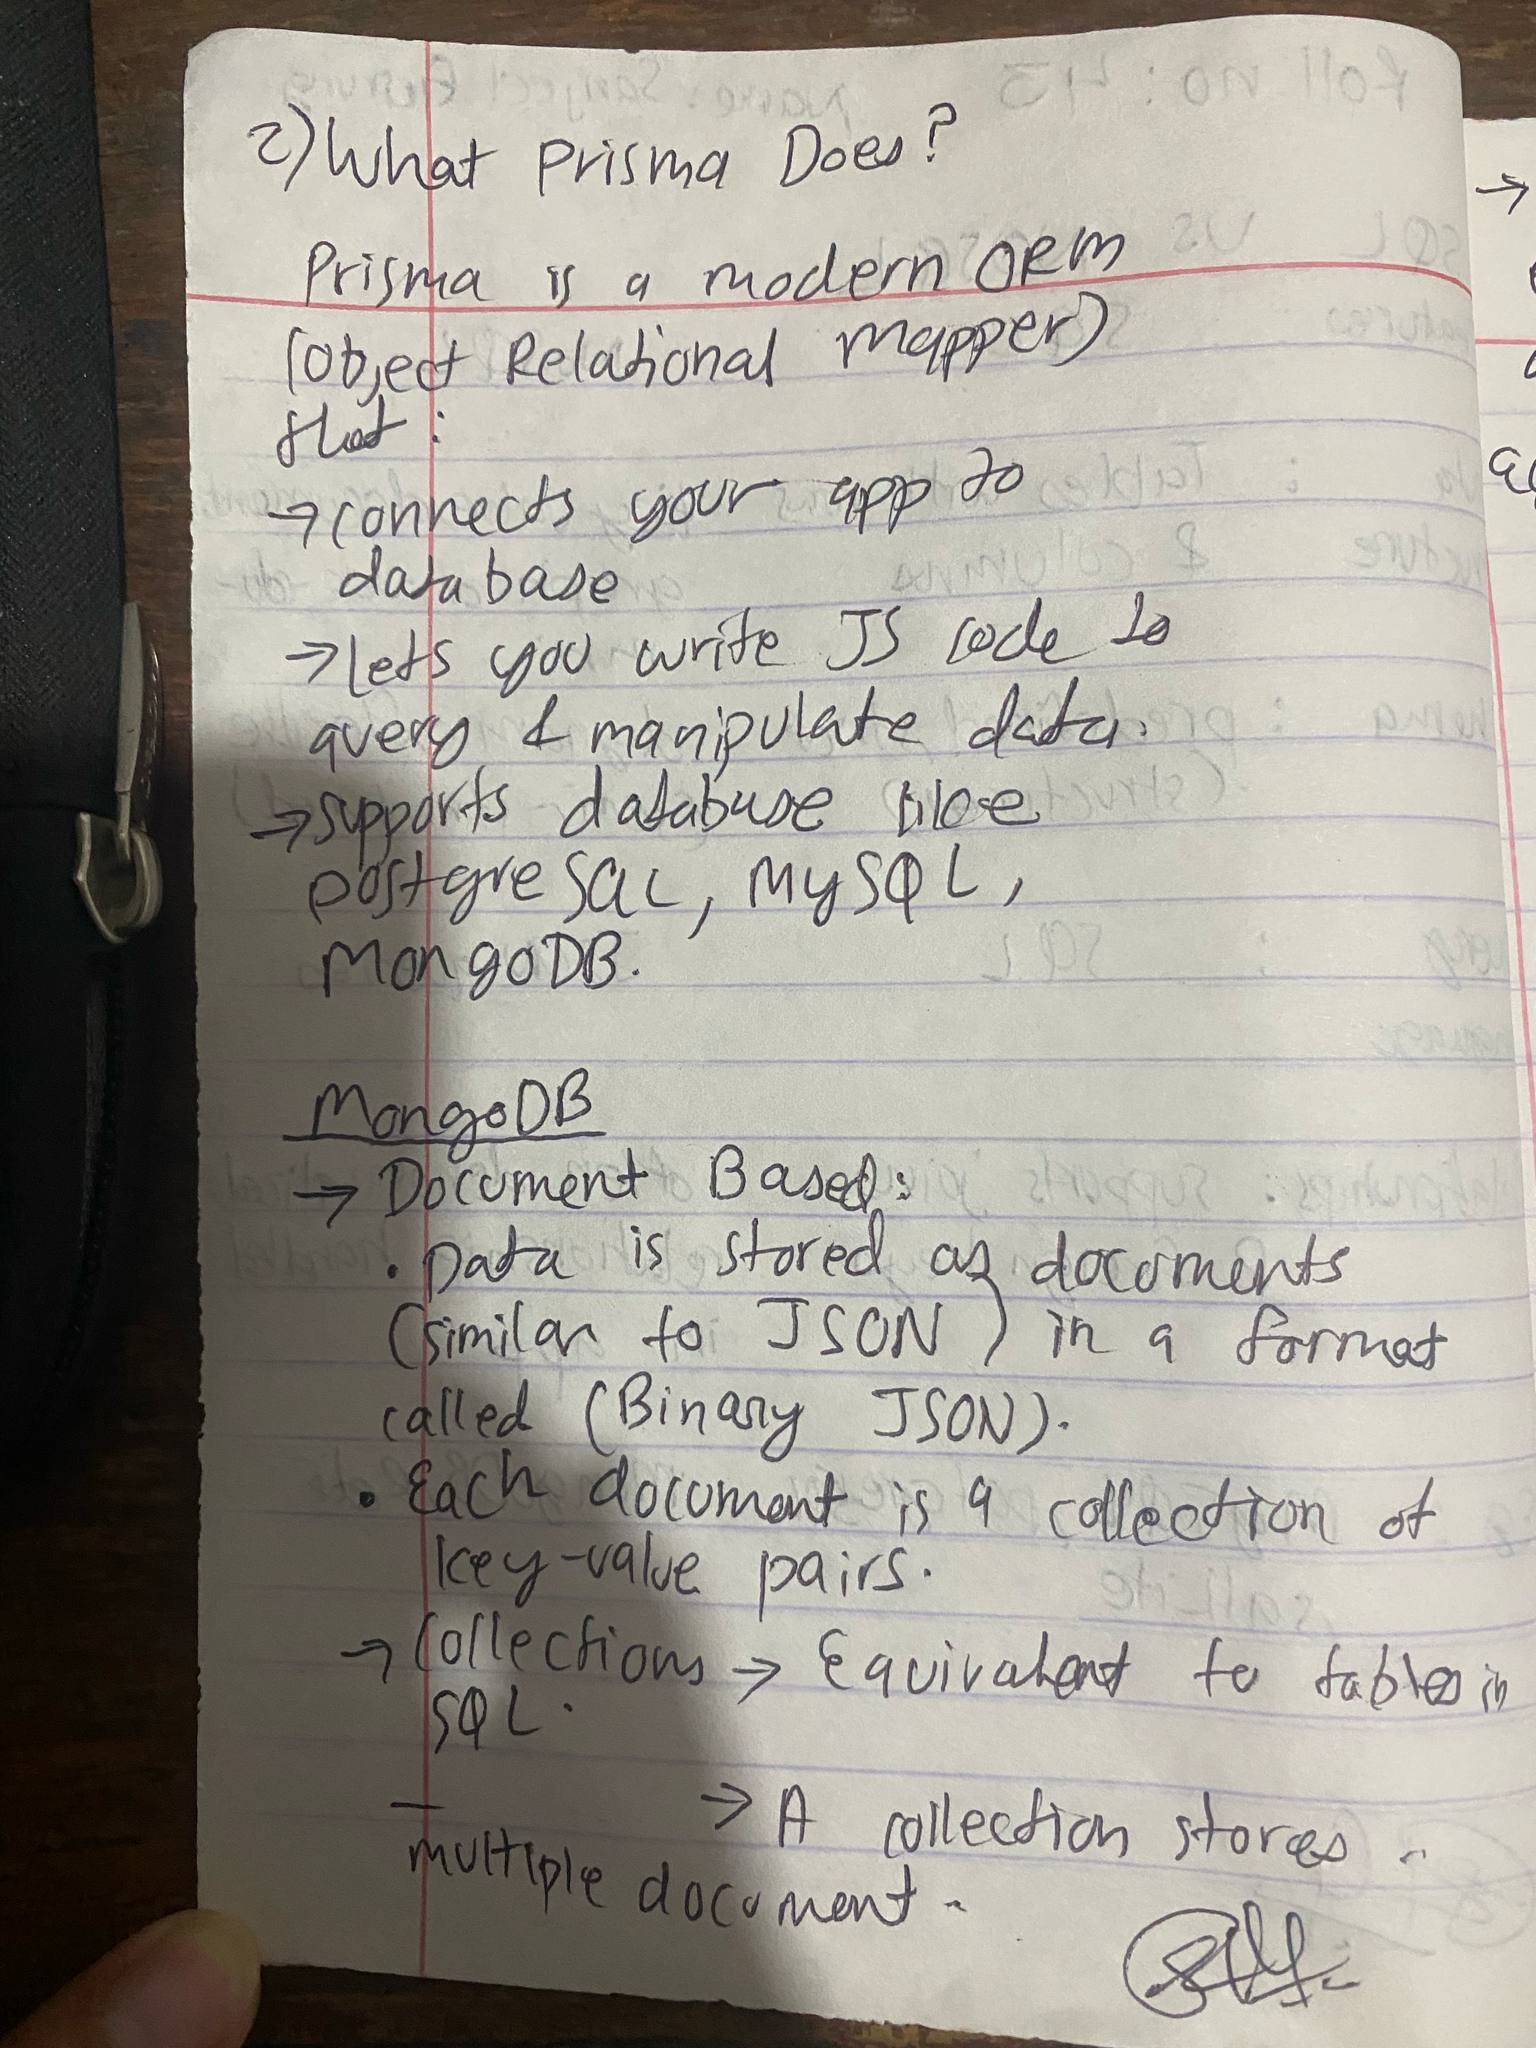 2) What Prisma Does?
Prisma is a modern ORM
(Object Relational Mapper)
that :
→ connects your app to
database
→ lets you write JS code to
query & manipulate data.
→ supports database like
postgreSQL, MySQL,
MongoDB.
MongoDB
→ Document Based:
• Data is stored as documents
(similar to JSON) in a format
called (Binary JSON).
• Each document is a collection of
key-value pairs.
→ Collections → Equivalent to tables in
SQL.
→ A collection stores
multiple document.